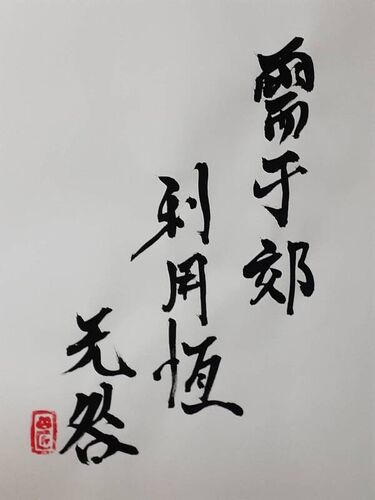 需于郊
利用恆
无咎